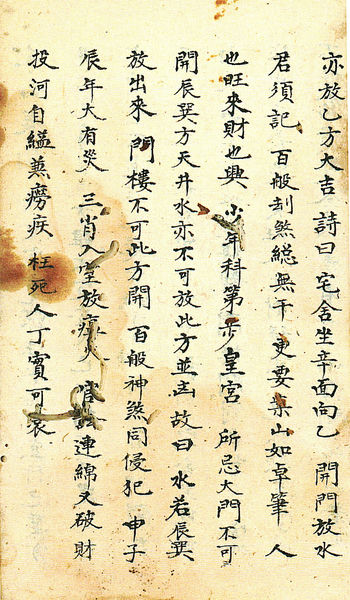 亦放乙方大吉 詩曰 宅舍坐辛面向乙 開門放水
君須記 百般刦煞総無干 更要案山如卓筆 人
也旺來財也興 少年科第步皇宮 所忌大門不可
開辰巽方天井水亦不可放此方並凶 故曰 水若辰巽
放出來 門樓不可此方開 百般神煞同侵犯 申子
辰年大有災 三肖入室放瘟火 連綿又破財
投河自縊兼癆疾 枉死人丁實可哀